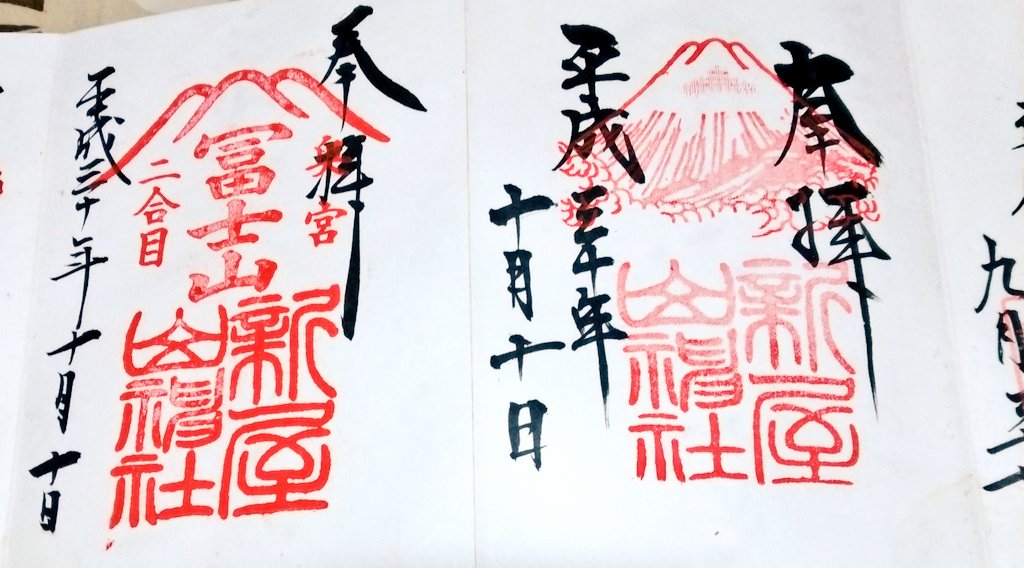 九月
奉拝
新屋
山神社
平成三十年
十月十日
奉拝
奥宮
富士山
二合目
新屋
山神社
平成三十年十月十日